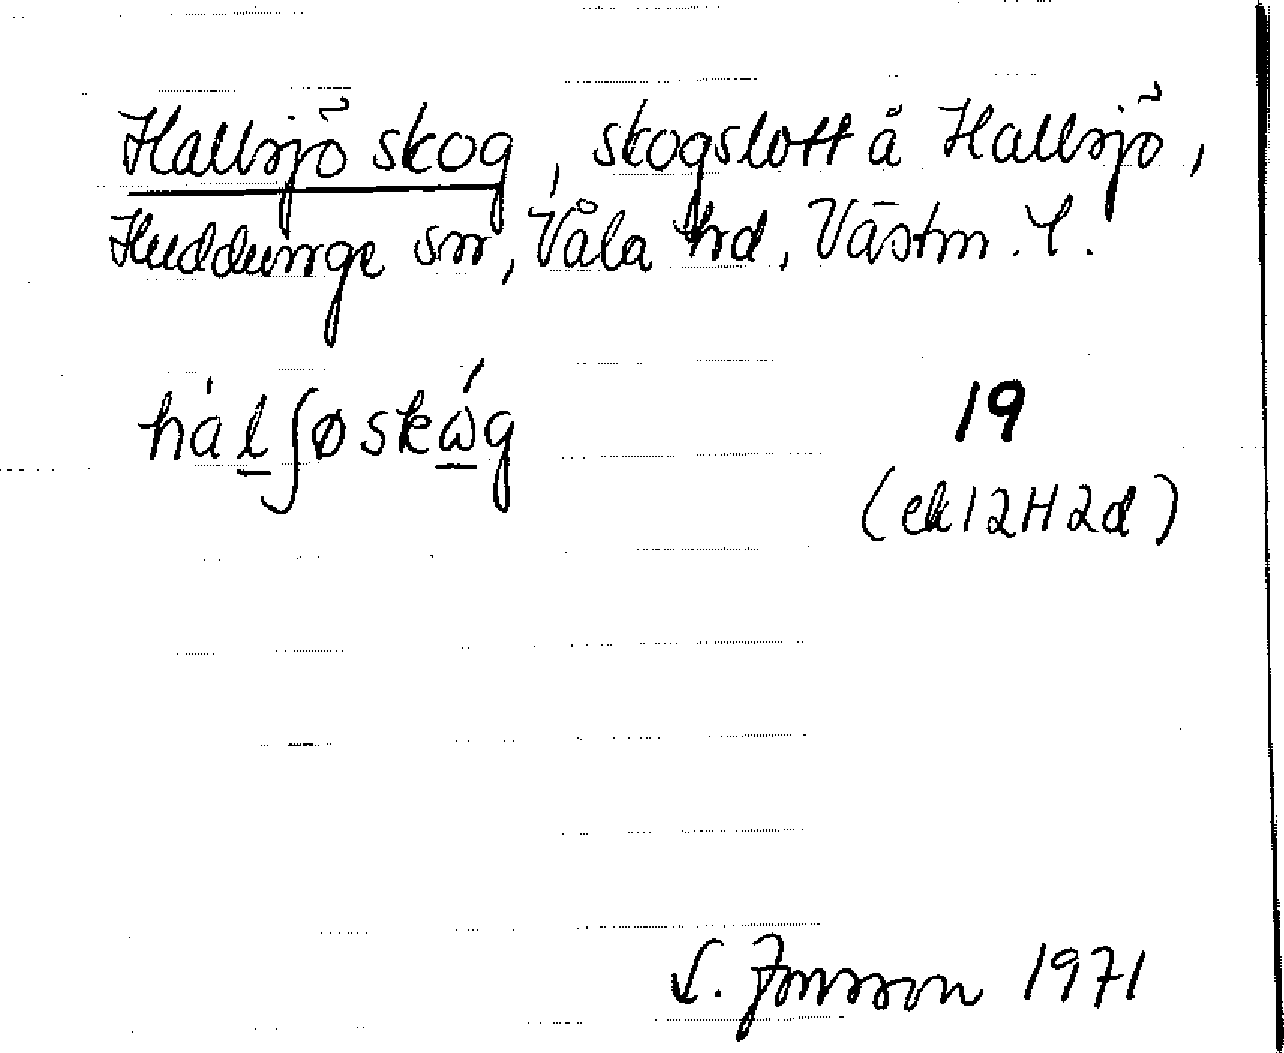 Hallsjö skog, skogslott å Hallsjö,
Huddunge sn, Våla hd, Västm. l.
hál̲ʃøskώ̲g
19
(ek 12H2d)
L. Jonsson 1971